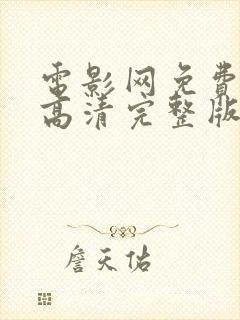 电影网免费
高清完整版
詹天佑